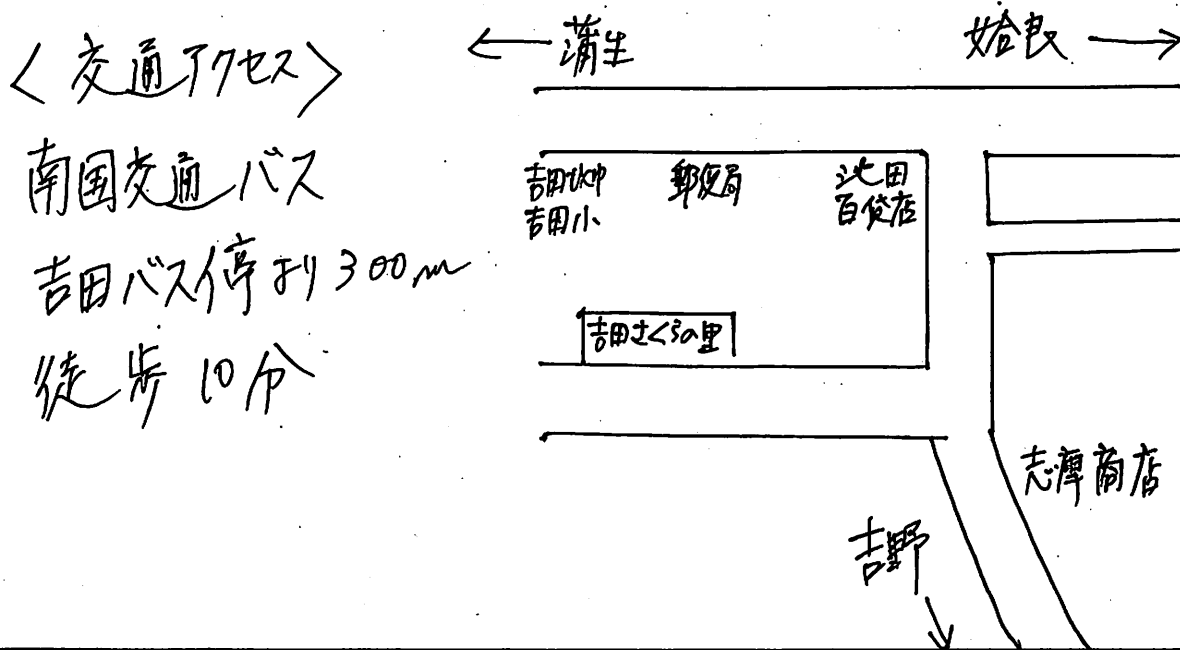 〈交通アクセス〉
南国交通バス
吉田バス停より300m
徒歩10分
← 蒲生
姶良 →
吉田小
郵便局
池田
百貨店
吉田さくらの里
志摩商店
吉野